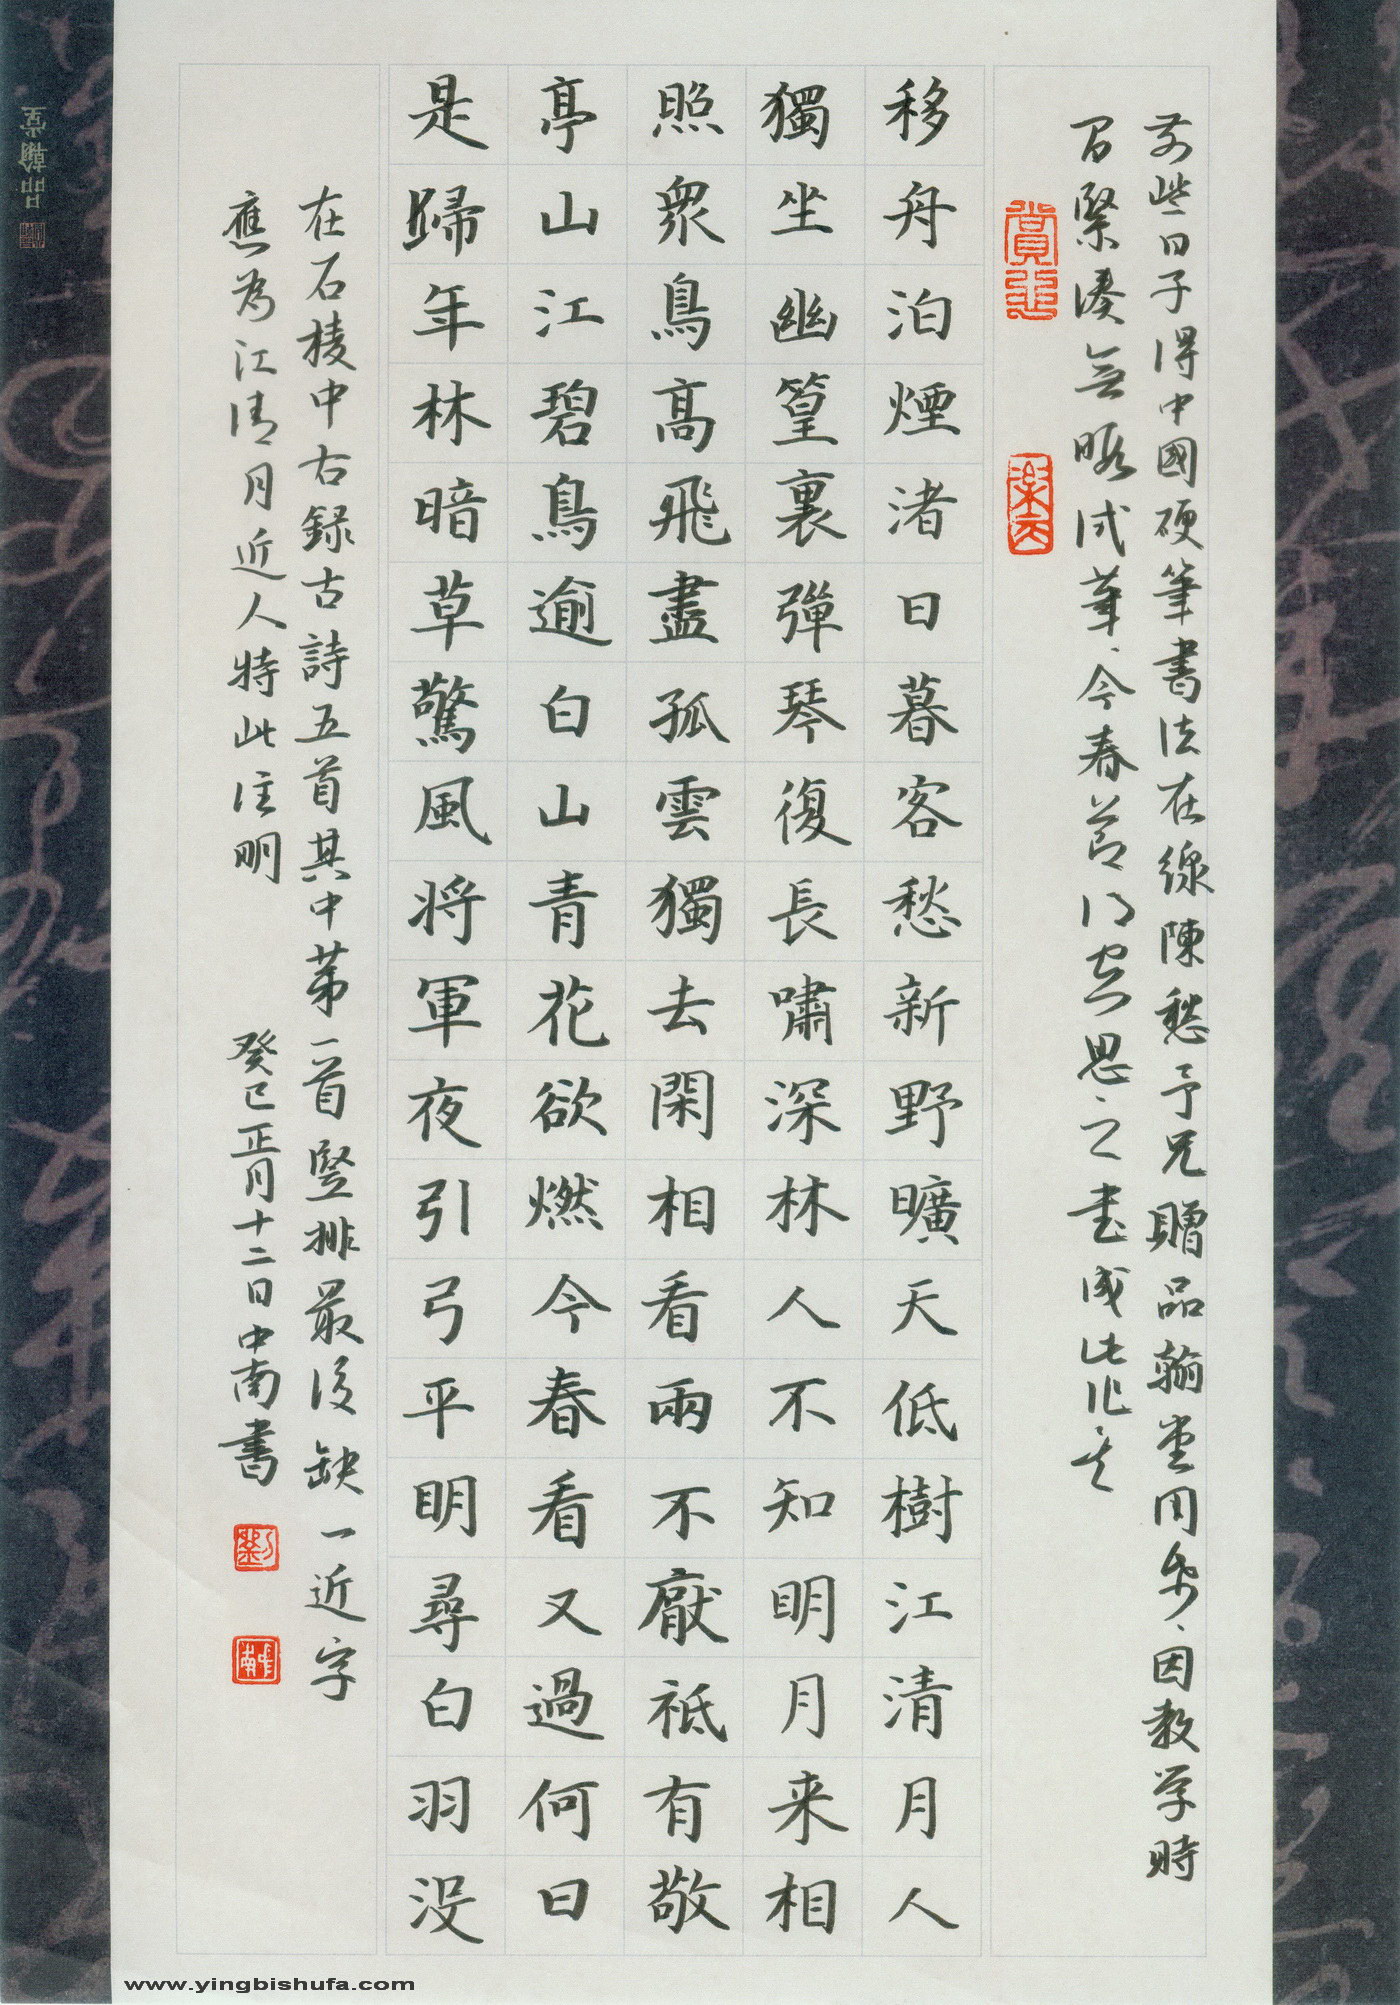 前些日子得中國硬筆書法在線陳愁予兄贈品翰堂用紙、因教学時
間緊湊無暇試筆、今春節得空思之書成此作矣
賞心
樂天
移舟泊煙渚日暮客愁新野曠天低樹江清月人
獨坐幽篁裏彈琴復長嘯深林人不知明月来相
照衆鳥高飛盡孤雲獨去閑相看兩不厭祗有敬
亭山江碧鳥逾白山青花欲燃今春看又過何日
是歸年林暗草驚風将軍夜引弓平明尋白羽没
在石棱中右録古詩五首其中第一首豎排最後缺一近字
應為江清月近人特此注明 癸巳正月十二日中南書
品翰堂
www.yingbishufa.com